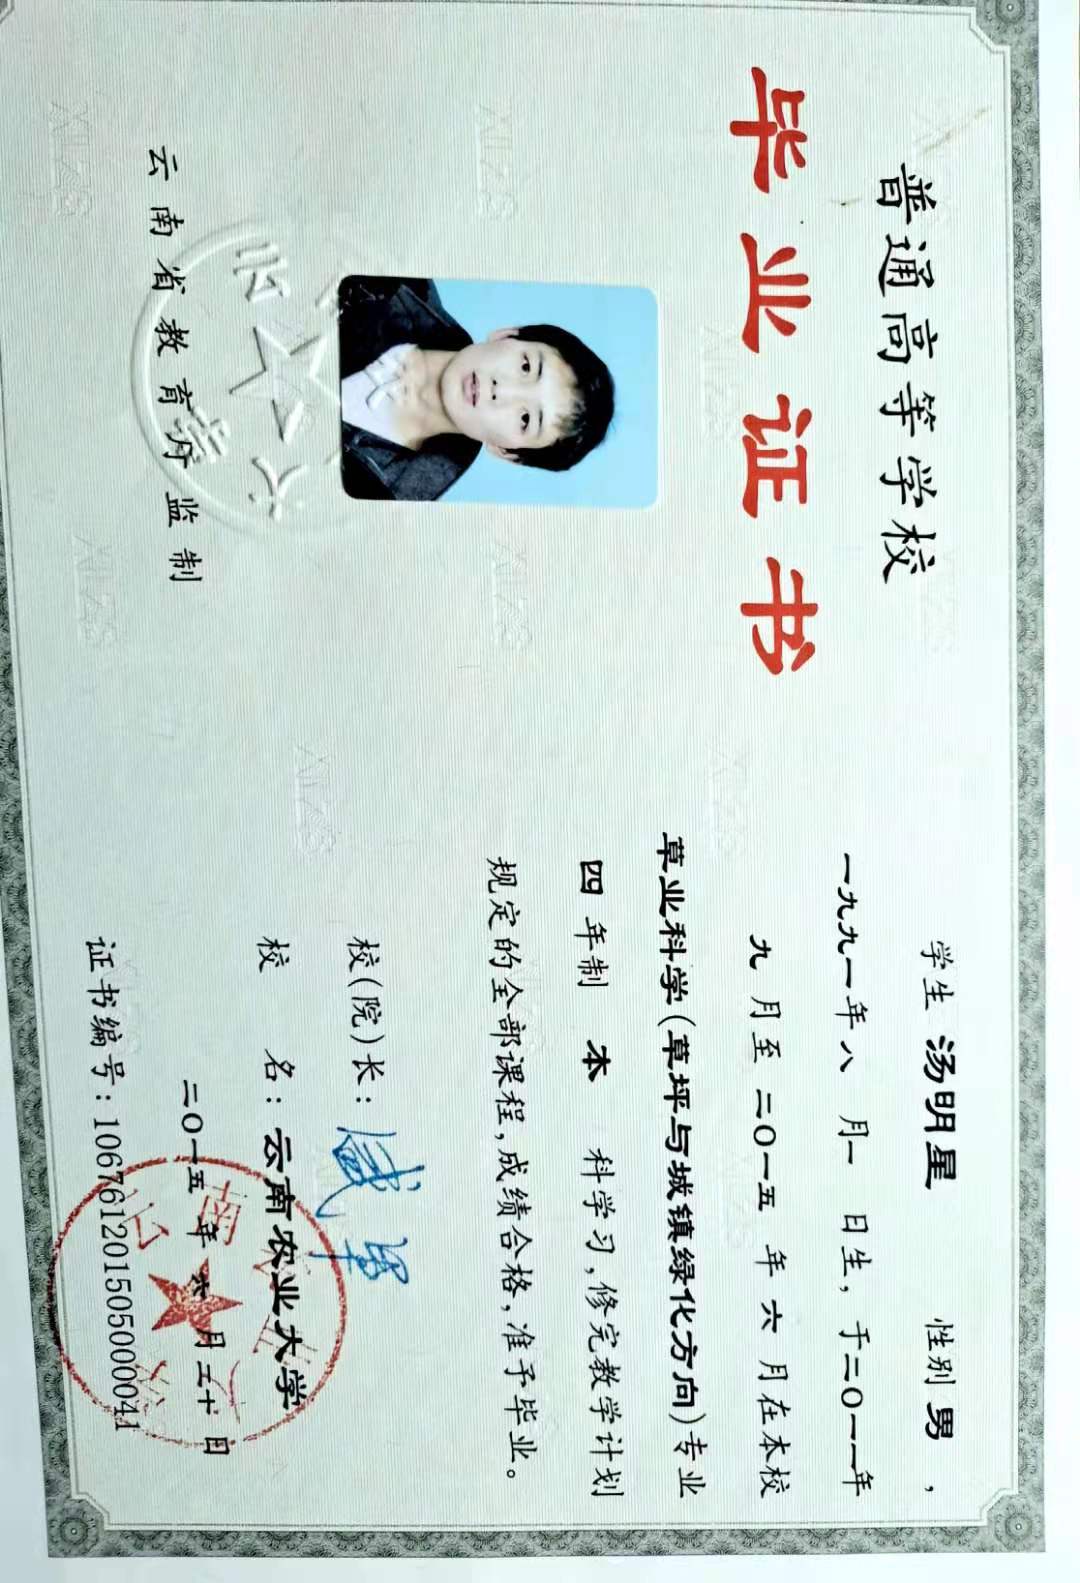 普通高等学校
毕业证书
云南省教育厅监制
学生 汤明星 性别 男,
一九九一年八 月一 日生,于二〇一一年
九 月至 二〇一五 年 六 月在本校
草业科学(草坪与城镇绿化方向)专业
四 年制 本 科学习,修完教学计划
规定的全部课程,成绩合格,准予毕业。
校(院)长:
校 名:云南农业大学
二〇一五 年 六 月 二十 日
证书编号:106761201505000041